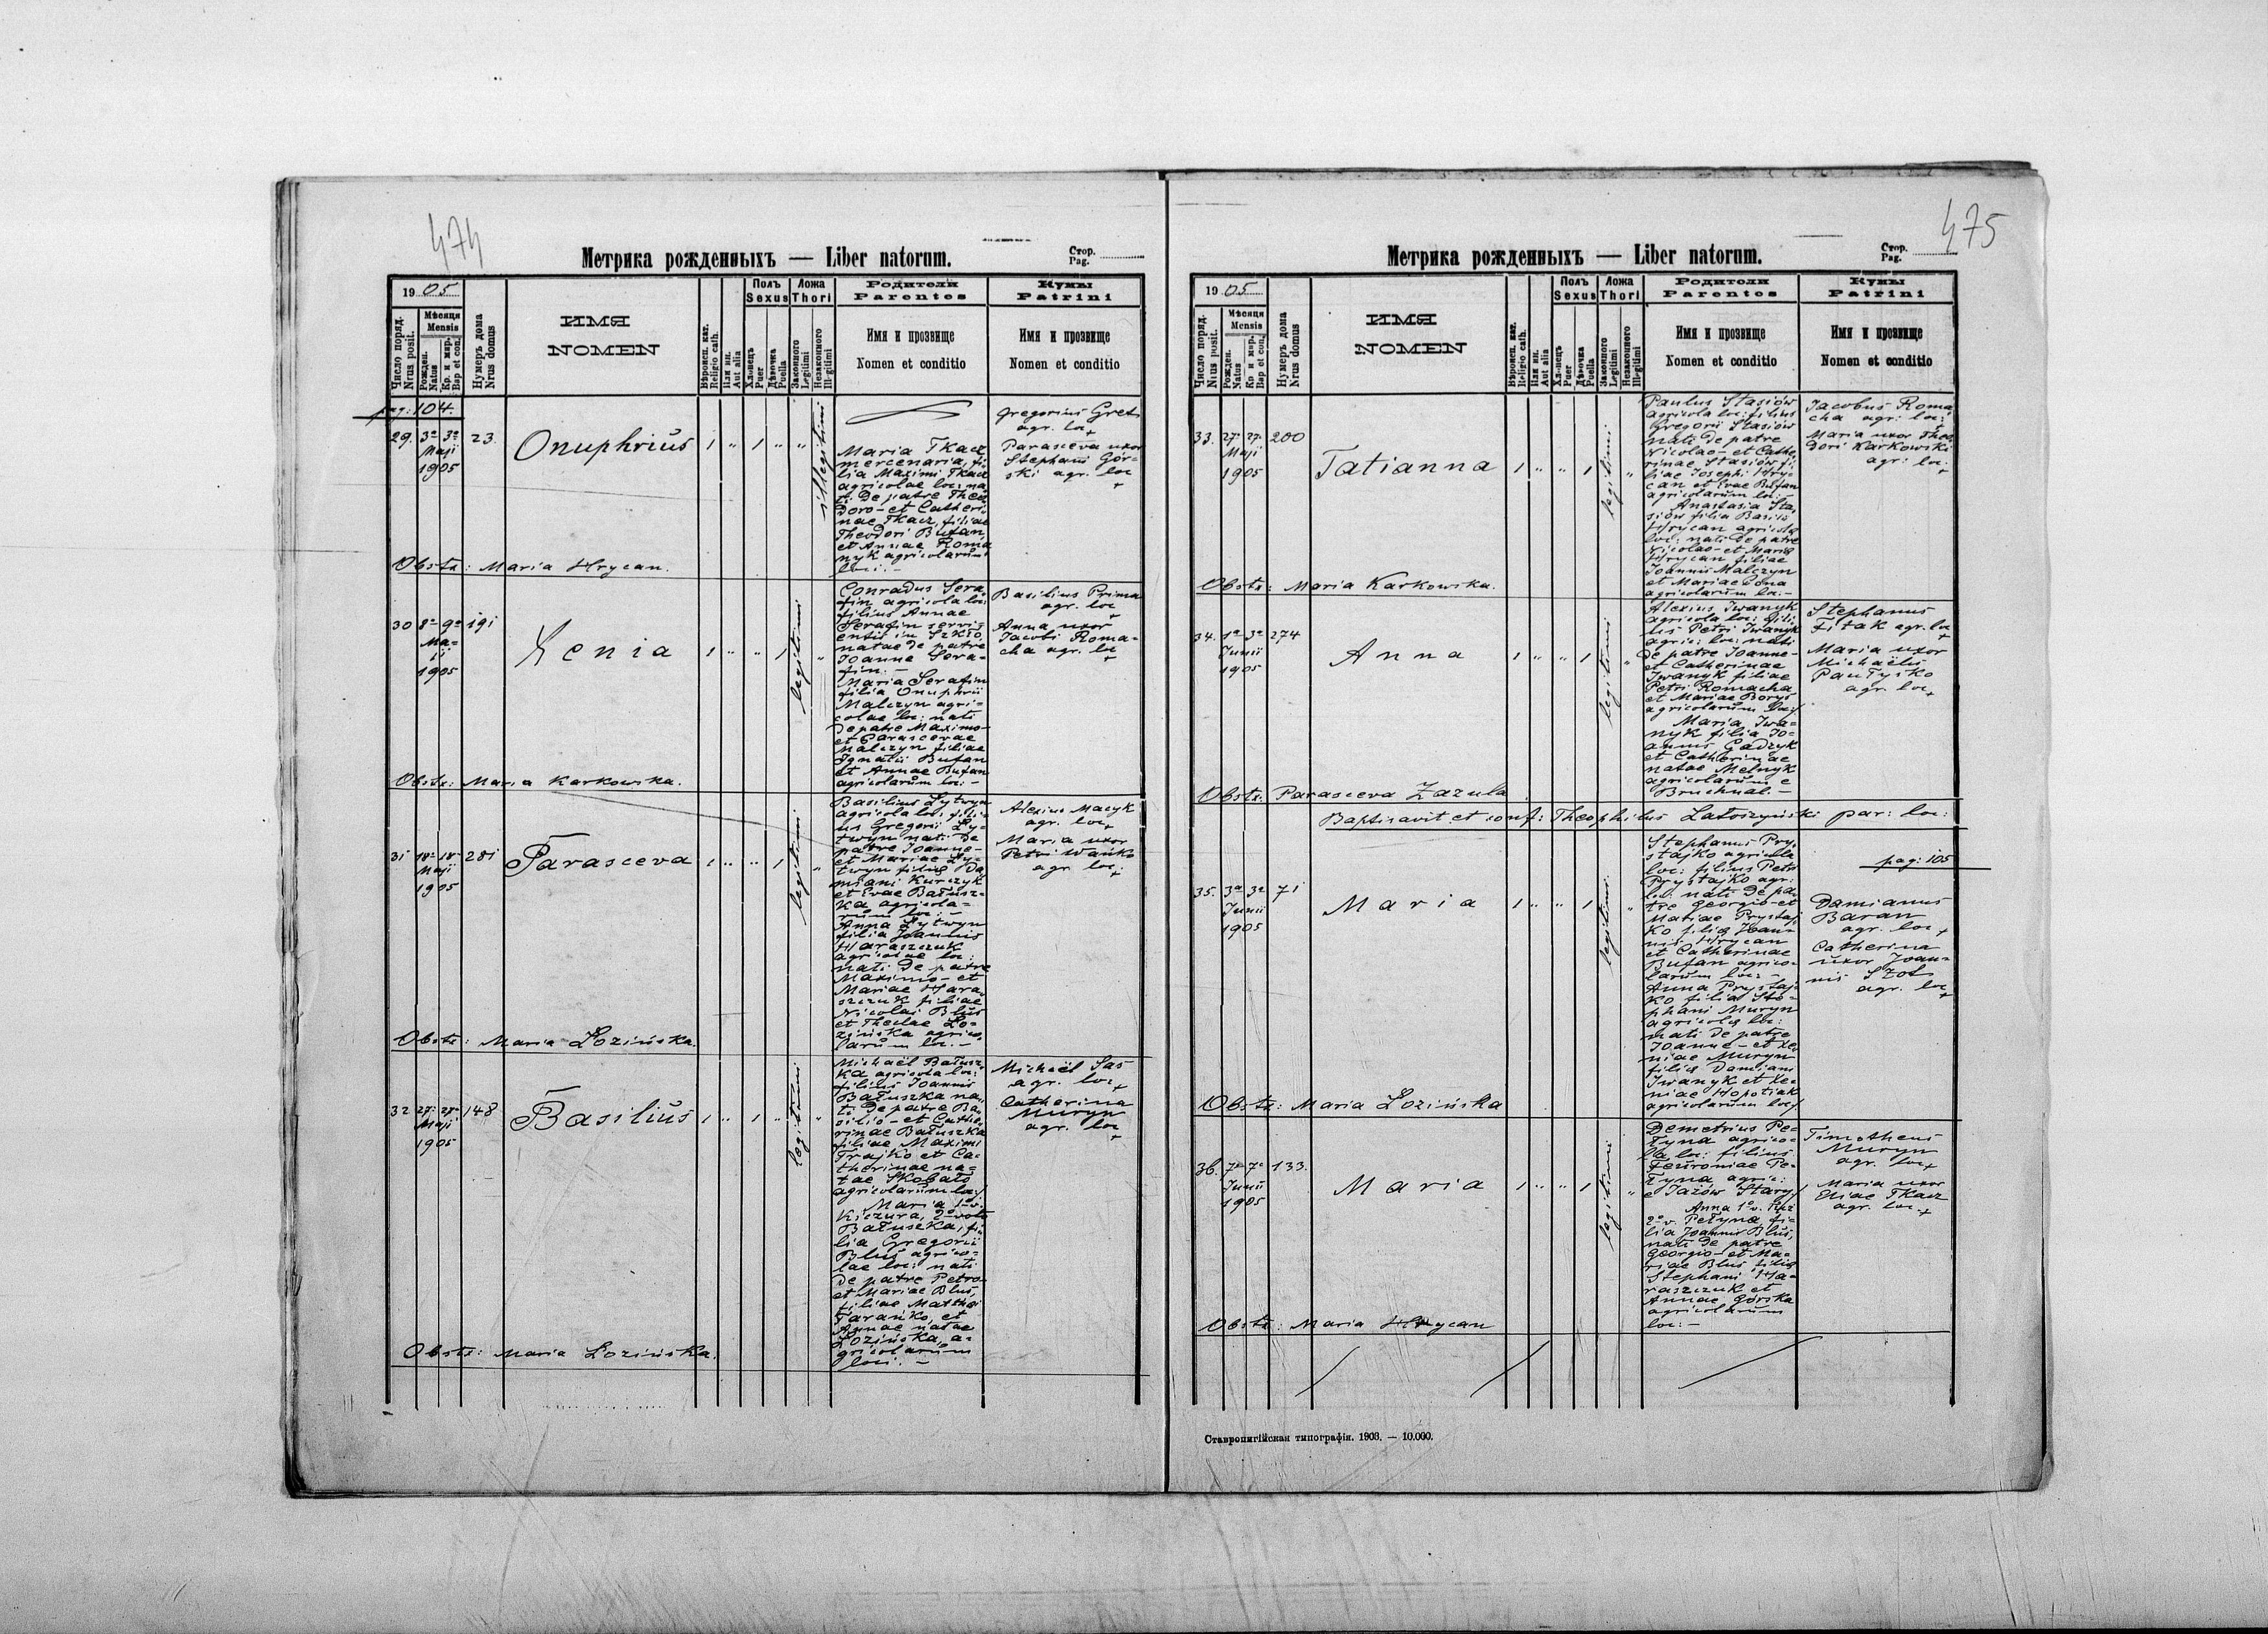 474
Метрика рожденныхъ — Liber natorum.
Стор.
Pag.
1905
Число поряд.
Nrus posit.
Мѣсяця
Mensis
Рожден.
Natus
Кр. и мир.
Bap et con.
Нумеръ дома
Nrus domus
ИМЯ
NOMEN
Вѣроисп. кат.
Religio cath.
Или ин.
Aut alia
Полъ
Sexus
Хлопецъ
Puer
Дѣвочка
Puella
Ложа
Thori
Законного
Legitimi
Незаконного
Illegitimi
Родители
Parentes
Имя и прозвище
Nomen et conditio
Кумы
Patrini
Имя и прозвище
Nomen et conditio
pag: 104.
29. 3a 3a 23.
Maji
1905
Onuphrius
1 " 1 " "
illegitimi
Maria Tkacz
mercenaria, fi-
lia Maximi Tkacz
agricolae loc: na-
ti de patre Theo
doro - et Catheri-
nae Tkacz, filiae
Theodori Bufan
et Annae Roma
nyk agricolarum
loci. -
Gregorius Gret
agr. loc
Parasceva uxor
Stephani Gór-
ski agr. loc
Obstx: Maria Hrycan.
30 8a 9a 191
Ma-
ji
1905
Xenia
1 " " 1
legitimi
"
Conradus Sera
fin agricola loc:
filius Annae
Serafin servi-
entis in Szkło,
natae de patre
Joanne Sera-
fin. -
Maria Serafin
filia Onuphrii
Malczyn agri-
colae loc: nati
de patre Maximo -
et Parascevae
Malczyn filiae
Ignatii Bufan
et Annae Bufan
agricolarum loc: -
Basilius Prima
agr. loc
Anna uxor
Jacobi Roma-
cha agr. loc
Obstx: Maria Karkowska.
31 18a 18a 281
Maji
1905
Parasceva
1 " " 1
legitimi
"
Basilius Lytwyn
agricola loc: fili-
us Gregorii Ly-
twyn nati de
patre Joanne -
et Mariae Ly-
twyn filiae Da
miani Kurczyk
et Evae Batusz-
ka agricola-
rum loc: -
Anna Lytwyn
filia Joannis
Haraszczuk
agricolae loc:
nati de patre
Maximo - et
Mariae Hara
szczuk filiae
Nicolai Bluś
et Theclae Ło-
zińska agrico-
larum loc. -
Alexius Macyk
agr. loc
Maria uxor
Petri Wańko
agr. loc:
Obstx: Maria Łozińska.
32 27a 27a 148
Maji
1905
Basilius
1 " 1 "
legitimi
"
Michaël Batusz
ka agricola loc:
filius Joannis
Batuszka na-
ti de patre Ba-
silio - et Cathe-
rinae Batuszka
filiae Maximi
Trajko et Ca-
therinae na-
tae Skobało
agricolarum loc:/
Maria 1o v.
Kiczura, 2o voto
Batuszka, fi-
lia Gregorii
Bluś agrico-
lae loc: nati
de patre Petro
et Mariae Bluś,
filiae Matthaei
Tarańko, et
Annae natae
Łozińska, a-
gricolarum
loci. -
Michaël Sas
agr. loc
Catherina
Muryn
agr. loc
Obstx: Maria Łozińska.
475
Метрика рожденныхъ — Liber natorum.
Стор.
Pag.
1905
Число поряд.
Nrus posit.
Мѣсяця
Mensis
Рожден.
Natus
Кр. и мир.
Bap et con.
Нумеръ дома
Nrus domus
ИМЯ
NOMEN
Вѣроисп. кат.
Religio cath.
Или ин.
Aut alia
Полъ
Sexus
Хлопецъ
Puer
Дѣвочка
Puella
Ложа
Thori
Законного
Legitimi
Незаконного
Illegitimi
Родители
Parentes
Имя и прозвище
Nomen et conditio
Кумы
Patrini
Имя и прозвище
Nomen et conditio
33. 27a 27a 200
Maji
1905
Tatianna
1 " " 1
legitimi
"
Paulus Stasiów
agricola loc: filius
Gregorii Stasiów
nati de patre
Nicolao - et Cathe-
rinae Stasiów fi-
liae Josephi Hry-
can et Evae Bufan
agricolarum loc: -
Anastasia Sta-
siów filia Basilii
Hrycan agricolae
loc: nati de patre
Nicolao - et Mariae
Hrycan filiae
Joannis Malczyn
et Mariae Dona
agricolarum loc: -
Jacobus Roma
cha agr: loc:
Maria uxor Theo
dori Karkowski
agr: loc:
Obstx: Maria Karkowska.
34. 1a 3a 274
Junii
1905
Anna
1 " " 1
legitimi
"
Alexius Iwanyk
agricola loc: fili-
us Petri Iwanyk
agric: loc: nati
de patre Joanne -
et Catherinae
Iwanyk filiae
Petri Romacha
et Mariae Borys
agricolarum loc:/
Maria Iwa-
nyk filia Jo-
annis Gadzyk
et Catherinae
natae Melnyk
agricolarum e
Bruchnal. -
Stephanus
Fitak agr. loc
Maria uxor
Michaëlis
Pautysko
agr. loc
Obstx: Parasceva Zazula
Baptisavit et conf: Theophilus Latoszyński par: loc:
pag: 105
35. 3a 3a 71
Junii
1905
Maria
1 " " 1
legitimi
"
Stephanus Pry-
stajko agricola
loc: filius Petri
Prystajko agr:
loc: nati de pa-
tre Georgio - et
Mariae Prystaj
ko filiae Joan-
nis Hrycan
et Catherinae
Bufan agrico-
larum loc: -
Anna Prystaj-
ko filia Ste-
phani Muryn
agricolae loc:
nati de patre
Joanne - et Xe-
niae Muryn
filiae Damiani
Iwanyk et Xe-
niae Hopotiak
agricolarum loc:/
Damianus
Baran
agr. loc
Catherina
uxor Joan-
nis Szot
agr. loc
Obstx: Maria Łozińska
36. 7a 7a 133.
Junii
1905
Maria
1 " " 1
legitimi
"
Demetrius Pe-
tyna agrico-
la loc: filius
Fewroniae Pe-
tyna agric:
e Jażów Stary/
Anna 1o v.
2o v. Petyna, fi-
lia Joannis Bluś,
nati de patre
Georgio - et Ma-
riae Bluś filiae
Stephani Ha-
raszczuk et
Annae Górska
agricolarum
loc: -
Timotheus
Muryn
agr. loc
Maria uxor
Eliae Tkacz
agr. loc.
Obstx: Maria Hrycan
Ставропигійская типографія. 1903. — 10.000.